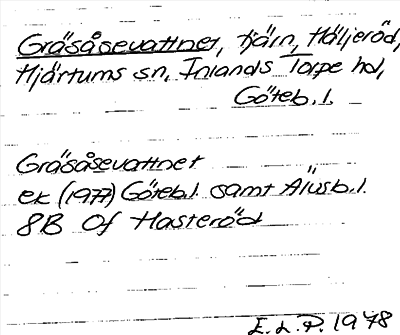 Gräsåsevattnet, tjärn, Häljeröd,
Hjärtums sn, Inlands Torpe hd,
Göteb. l.
Gräsåsevattnet
ek (1977) Göteb. l. samt Älvsb. l.
8B 0f Hasteröd
E. L. P. 1978